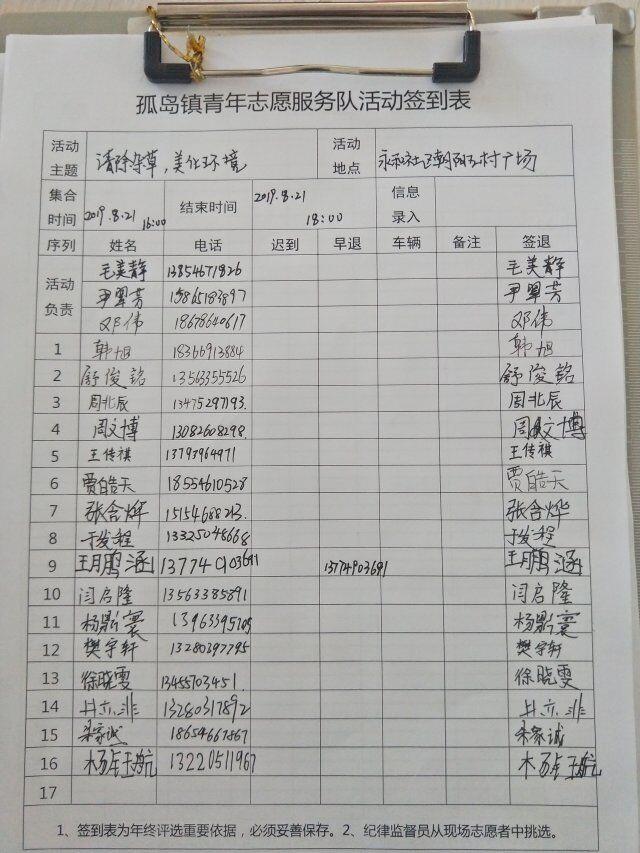 孤岛镇青年志愿服务队活动签到表
活动主题 清除杂草,美化环境 活动地点 永和社区朝阳村广场
集合时间 2019.8.21 16:00 结束时间 2019.8.21 18:00 信息录入
序列 姓名 电话 迟到 早退 车辆 备注 签退
活动负责 毛美静 13854671826 毛美静
尹翠芳 15865183897 尹翠芳
邓伟 18678640617 邓伟
1 韩旭 18366913884 韩旭
2 舒俊铭 13563355526 舒俊铭
3 周北辰 13475297193. 周北辰
4 周文博 13082608298. 周文博
5 王传祺 13793964971 王传祺
6 贾皓天 18554610528 贾皓天
7 张含烨 15154688213. 张含烨
8 于发程 13325048668 于发程
9 王鹏涵 13774903691 13774903691 王鹏涵
10 闫启隆 13563385891 闫启隆
11 杨影寰 杨影寰
12 樊宇轩 13280397795 樊宇轩
13 徐晓雯 13455703451. 徐晓雯
14 井亦非 13280317892 井亦非
15 家诚 18654667867 家诚
16 13220511967
17
1、签到表为年终评选重要依据,必须妥善保存。2、纪律监督员从现场志愿者中挑选。